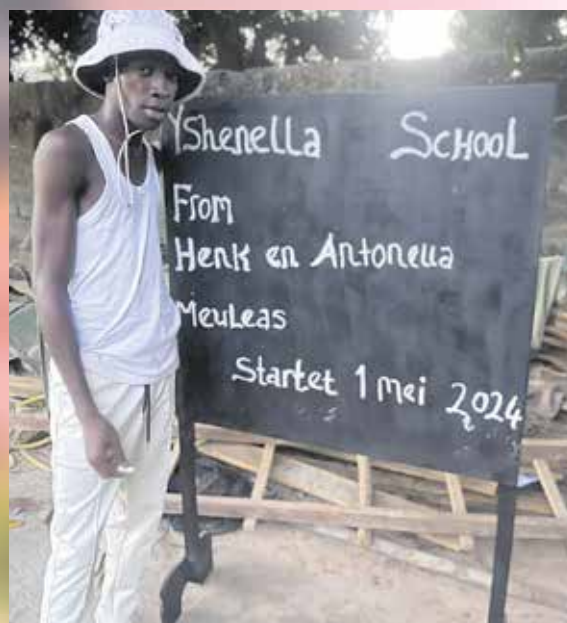 Yshenella School
From
Henk en Antonella
Meuleas
Startet 1 mei 2024